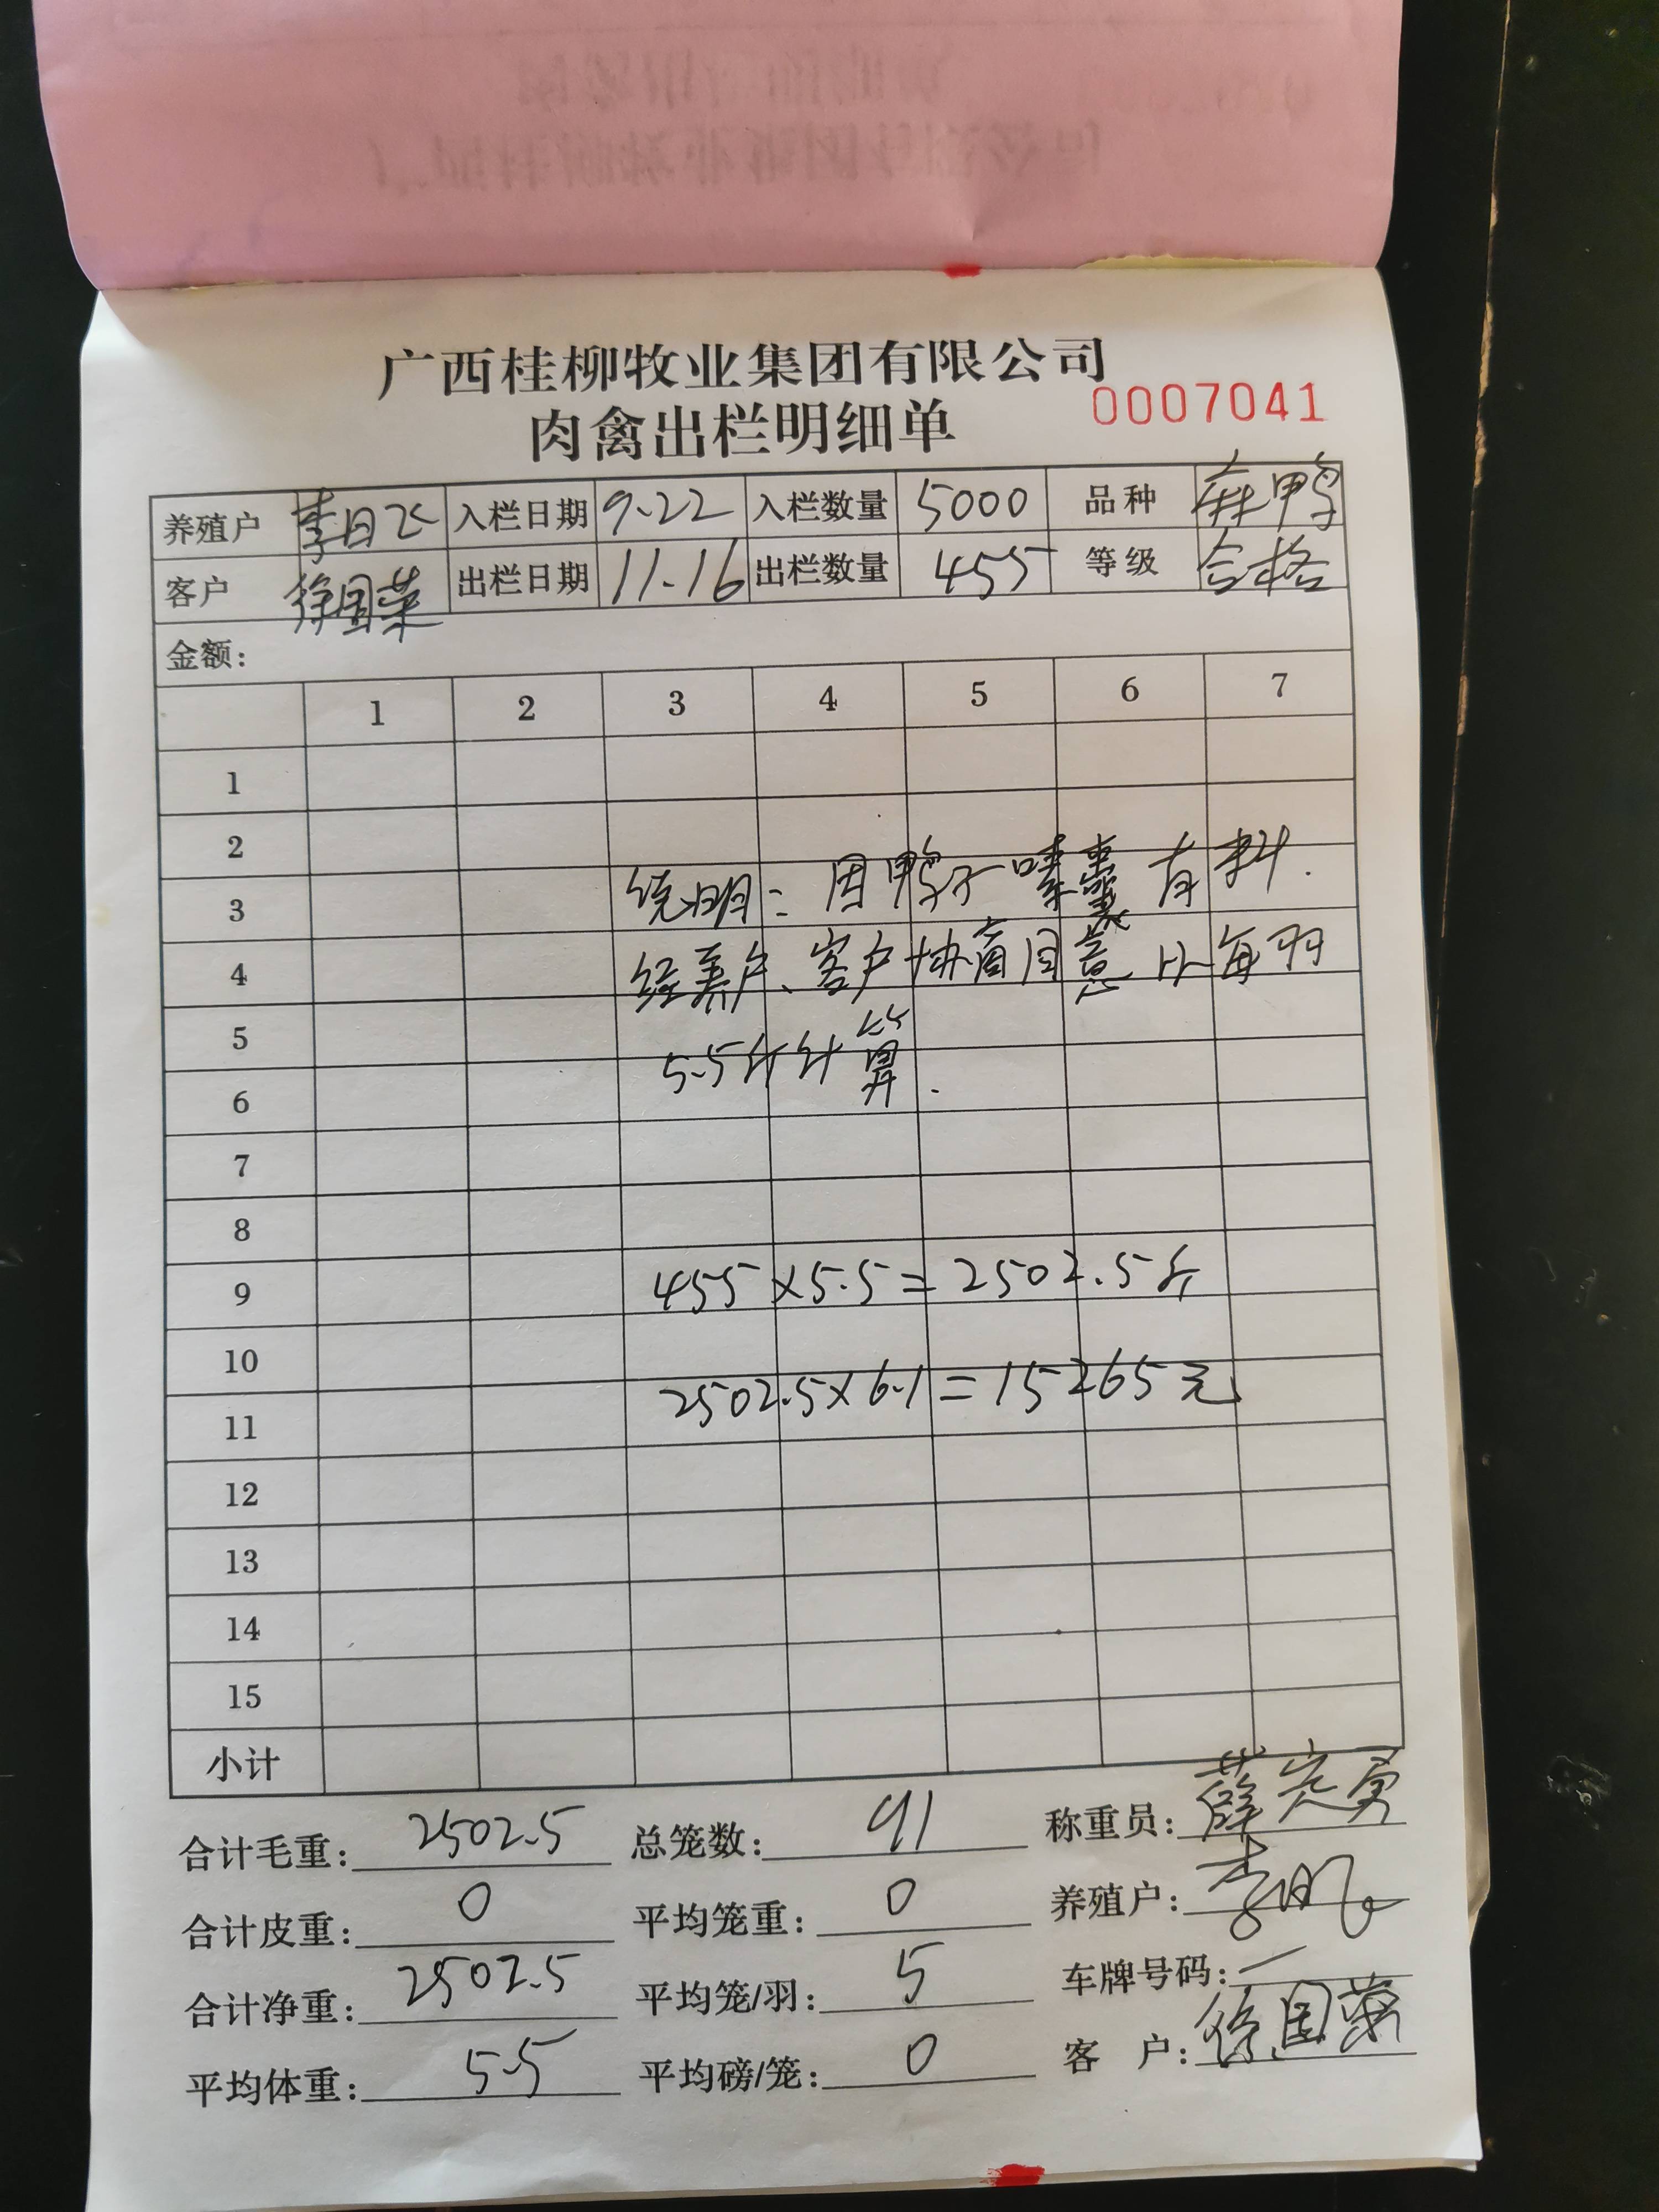 广西桂柳牧业集团有限公司
肉禽出栏明细单 0007041
养殖户 李日飞 入栏日期 9.22 入栏数量 5000 品种 麻鸭
客户 徐国荣 出栏日期 11.16 出栏数量 455 等级 合格
金额:
1 2 3 4 5 6 7
1
2
3 说明: 因鸭子嗉囊有料.
4 经养户、客户协商同意以每羽
5
5.5斤计算.
6
7
8
9 455×5.5=2502.5斤
10
11 2502.5×6.1=15265元
12
13
14
15
小计
合计毛重: 2502.5 总笼数: 91 称重员: 薛宏勇
合计皮重: 0 平均笼重: 0 养殖户: 李日飞
合计净重: 2502.5 平均笼/羽: 5 车牌号码: 一
平均体重: 5.5 平均磅/笼: 0 客 户: 徐国荣